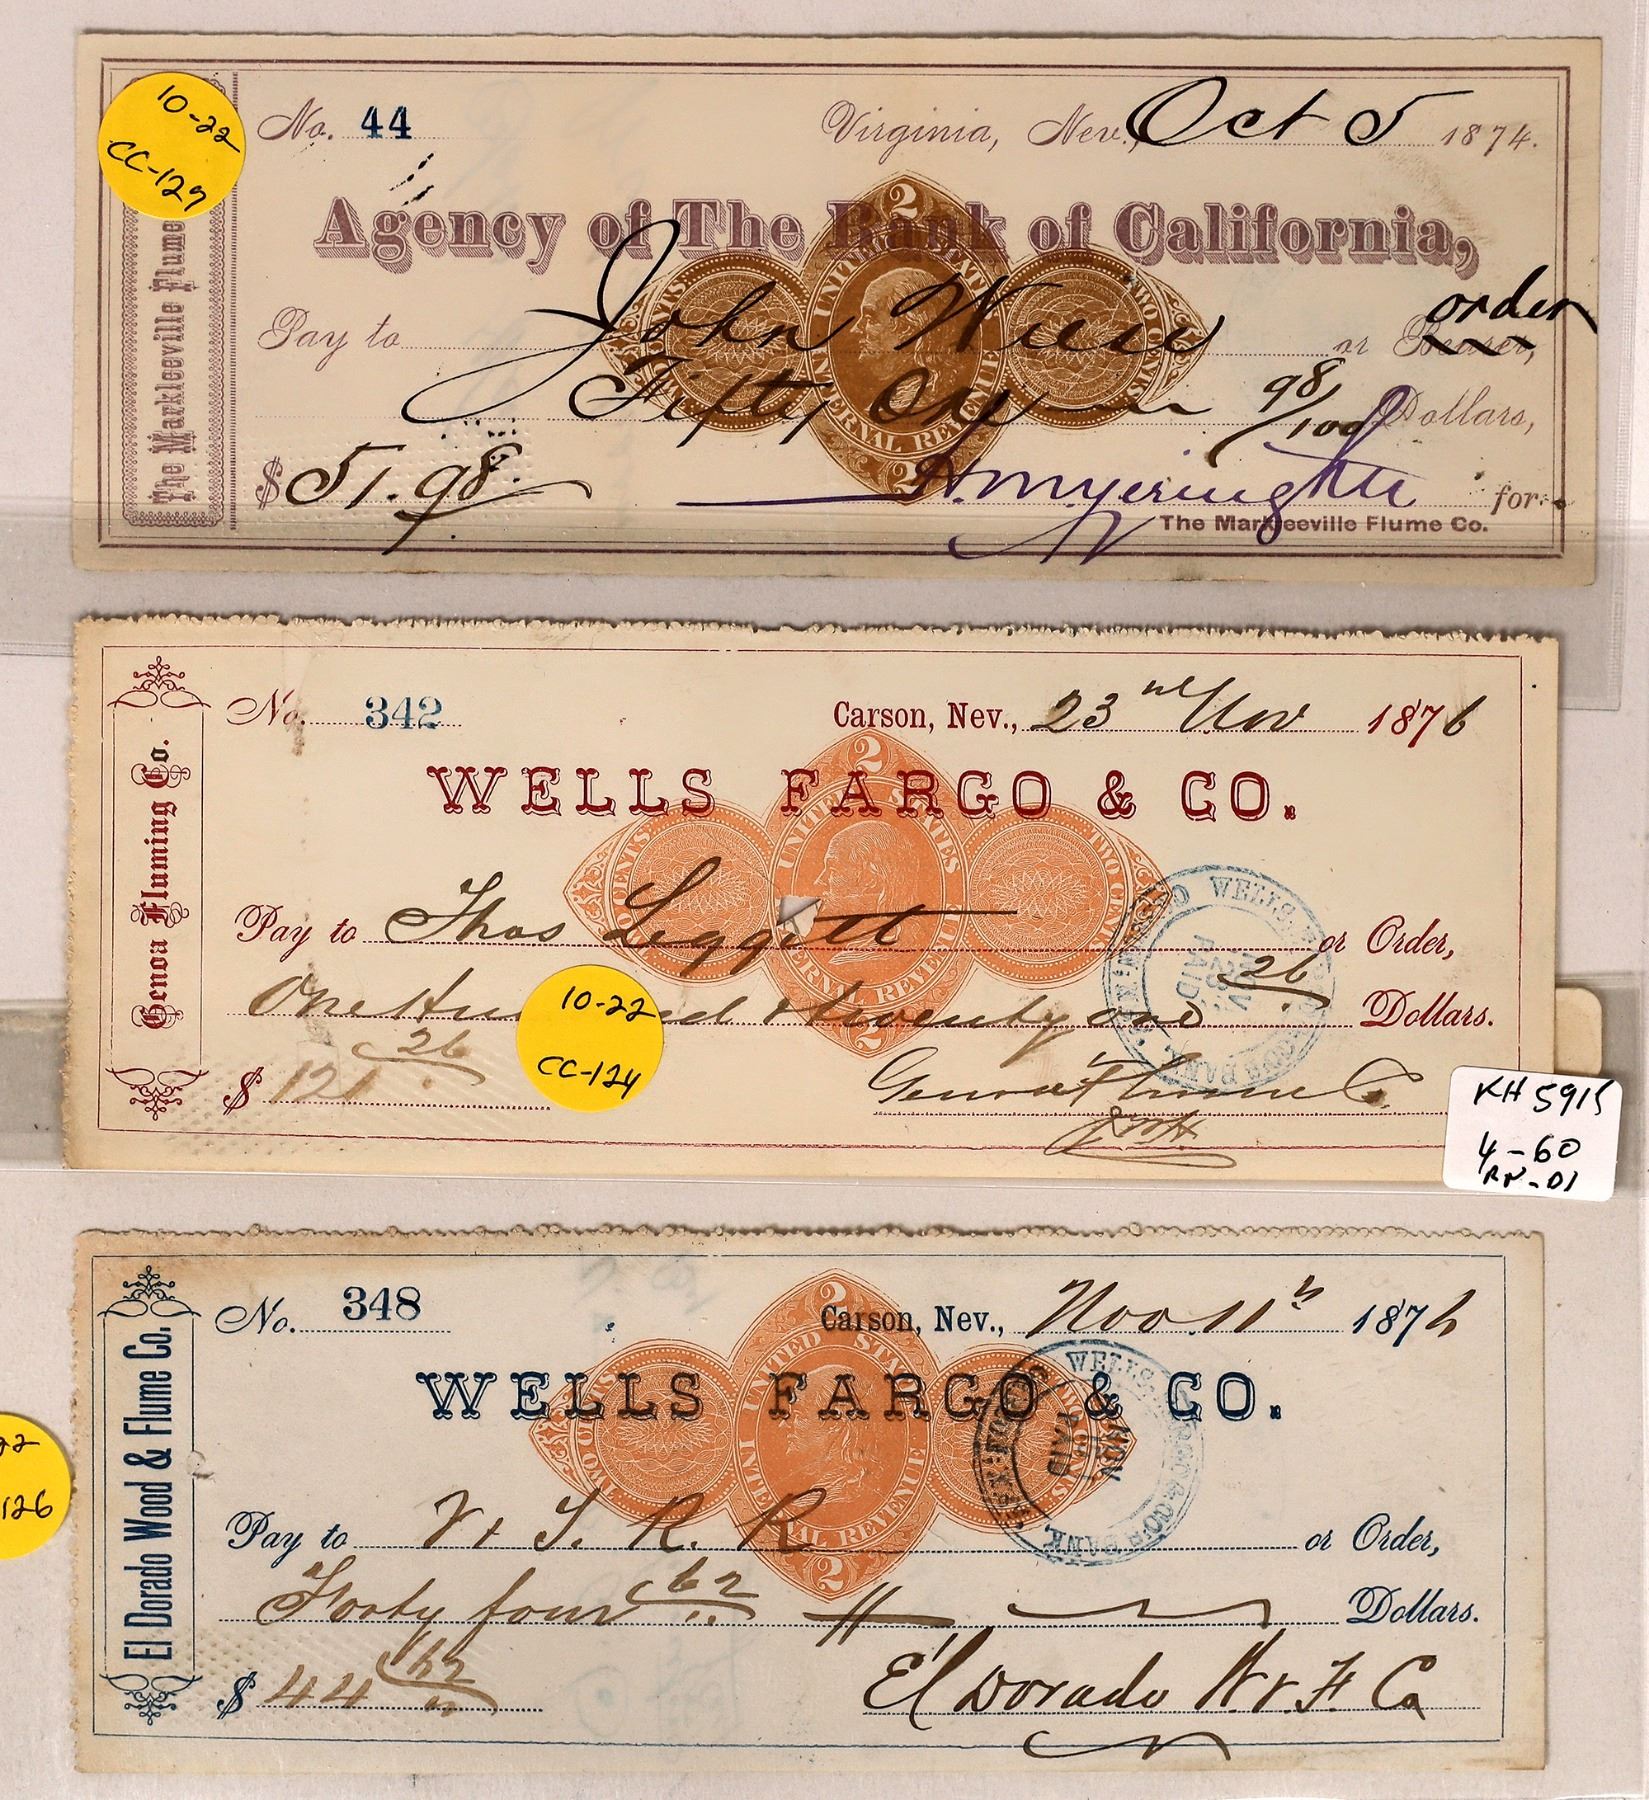 10-22
CC-127
The Markleeville Flume
No. 44
Virginia, Nev., Oct 5 1874.
Agency of The Bank of California,
2
UNITED STATES
INTERNAL REVENUE
TWO CENTS
2
Pay to John or Bearer, order
Fifty One 98/100 Dollars,
$ 51.98
for
The Markleeville Flume Co.
Genoa Fluming Co.
No. 342
Carson, Nev., 23rd Nov 1876
WELLS FARGO & CO.
2
UNITED STATES
INTERNAL REVENUE
TWO CENTS TWO CENTS
2
Pay to Thos Leggett or Order,
One Hundred & twenty one 26 Dollars.
$ 121 26
Genoa Flume Co.
WELLS, FARGO & CO'S BANK
NOV
PAID
10-22
CC-124
KH 5915
4-60
El Dorado Wood & Flume Co.
No. 348
Carson, Nev., Nov. 11th 1876
WELLS FARGO & CO.
2
UNITED STATES
INTERNAL REVENUE
TWO CENTS TWO CENTS
2
WELLS, FARGO & CO'S BANK
NOV
PAID
Pay to V & T. R. R or Order,
Forty four 62 Dollars.
$ 44 62
El Dorado W. & F Co
22
126